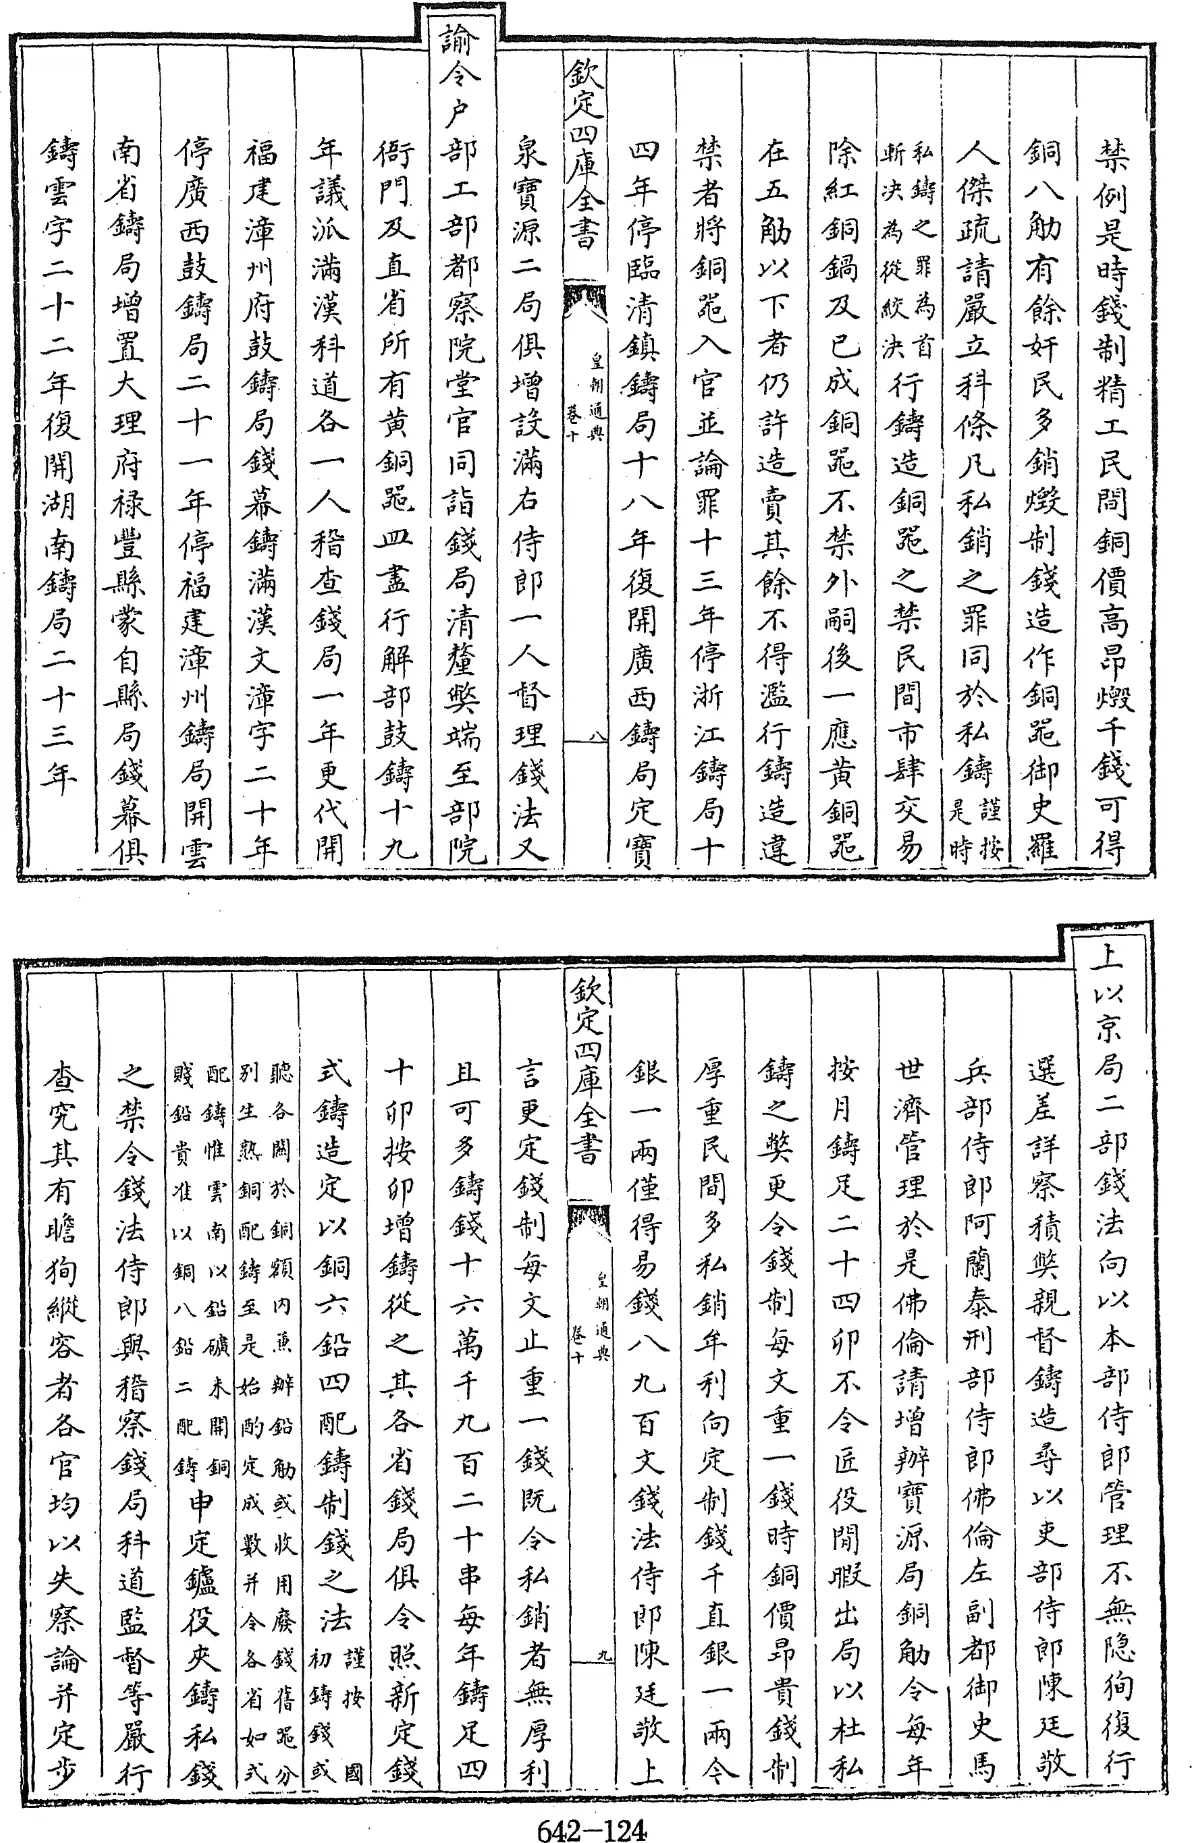 禁例是時錢制精工民間銅價高昂燬千錢可得
銅八觔有餘奸民多銷燬制錢造作銅噐御史羅
人傑疏請嚴立科條凡私銷之罪同於私鑄謹按是時
私鑄之罪為首斬決為從絞決行鑄造銅噐之禁民間市肆交易
除紅銅鍋及已成銅噐不禁外嗣後一應黄銅噐
在五觔以下者仍許造賣其餘不得濫行鑄造違
禁者將銅噐入官並論罪十三年停浙江鑄局十
四年停臨清鎮鑄局十八年復開廣西鑄局定寶
欽定四庫全書
皇朝通典
卷十
八
泉寶源二局俱增設滿右侍郎一人督理錢法又
諭令户部工部都察院堂官同詣錢局清釐獘端至部院
衙門及直省所有黄銅噐皿盡行解部鼓鑄十九
年議派滿漢科道各一人稽查錢局一年更代開
福建漳州府鼓鑄局錢幕鑄滿漢文漳字二十年
停廣西鼓鑄局二十一年停福建漳州鑄局開雲
南省鑄局增置大理府禄豐縣蒙自縣局錢幕俱
鑄雲字二十二年復開湖南鑄局二十三年
上以京局二部錢法向以本部侍郎管理不無隐狥復行
選差詳察積獘親督鑄造尋以吏部侍郎陳廷敬
兵部侍郎阿蘭泰刑部侍郎佛倫左副都御史馬
世濟管理於是佛倫請增辦寶源局銅觔令每年
按月鑄足二十四卯不令匠役閒暇出局以杜私
鑄之獘更令錢制每文重一錢時銅價昻貴錢制
厚重民間多私銷牟利向定制錢千直銀一兩今
銀一兩僅得易錢八九百文錢法侍郎陳廷敬上
欽定四庫全書
皇朝通典
卷十
九
言更定錢制每文止重一錢既令私銷者無厚利
且可多鑄錢十六萬千九百二十串每年鑄足四
十卯按卯增鑄從之其各省錢局俱令照新定錢
式鑄造定以銅六鉛四配鑄制錢之法謹按國初鑄錢或
聽各關於銅額内兼辦鉛觔或收用廢錢舊噐分別生熟銅配鑄至是始酌定成數并令各省如式
配鑄惟雲南以鉛礦未開銅賤鉛貴准以銅八鉛二配鑄申定鑪役夾鑄私錢
之禁令錢法侍郎與稽察錢局科道監督等嚴行
查究其有瞻狥縱容者各官均以失察論并定步
642-124